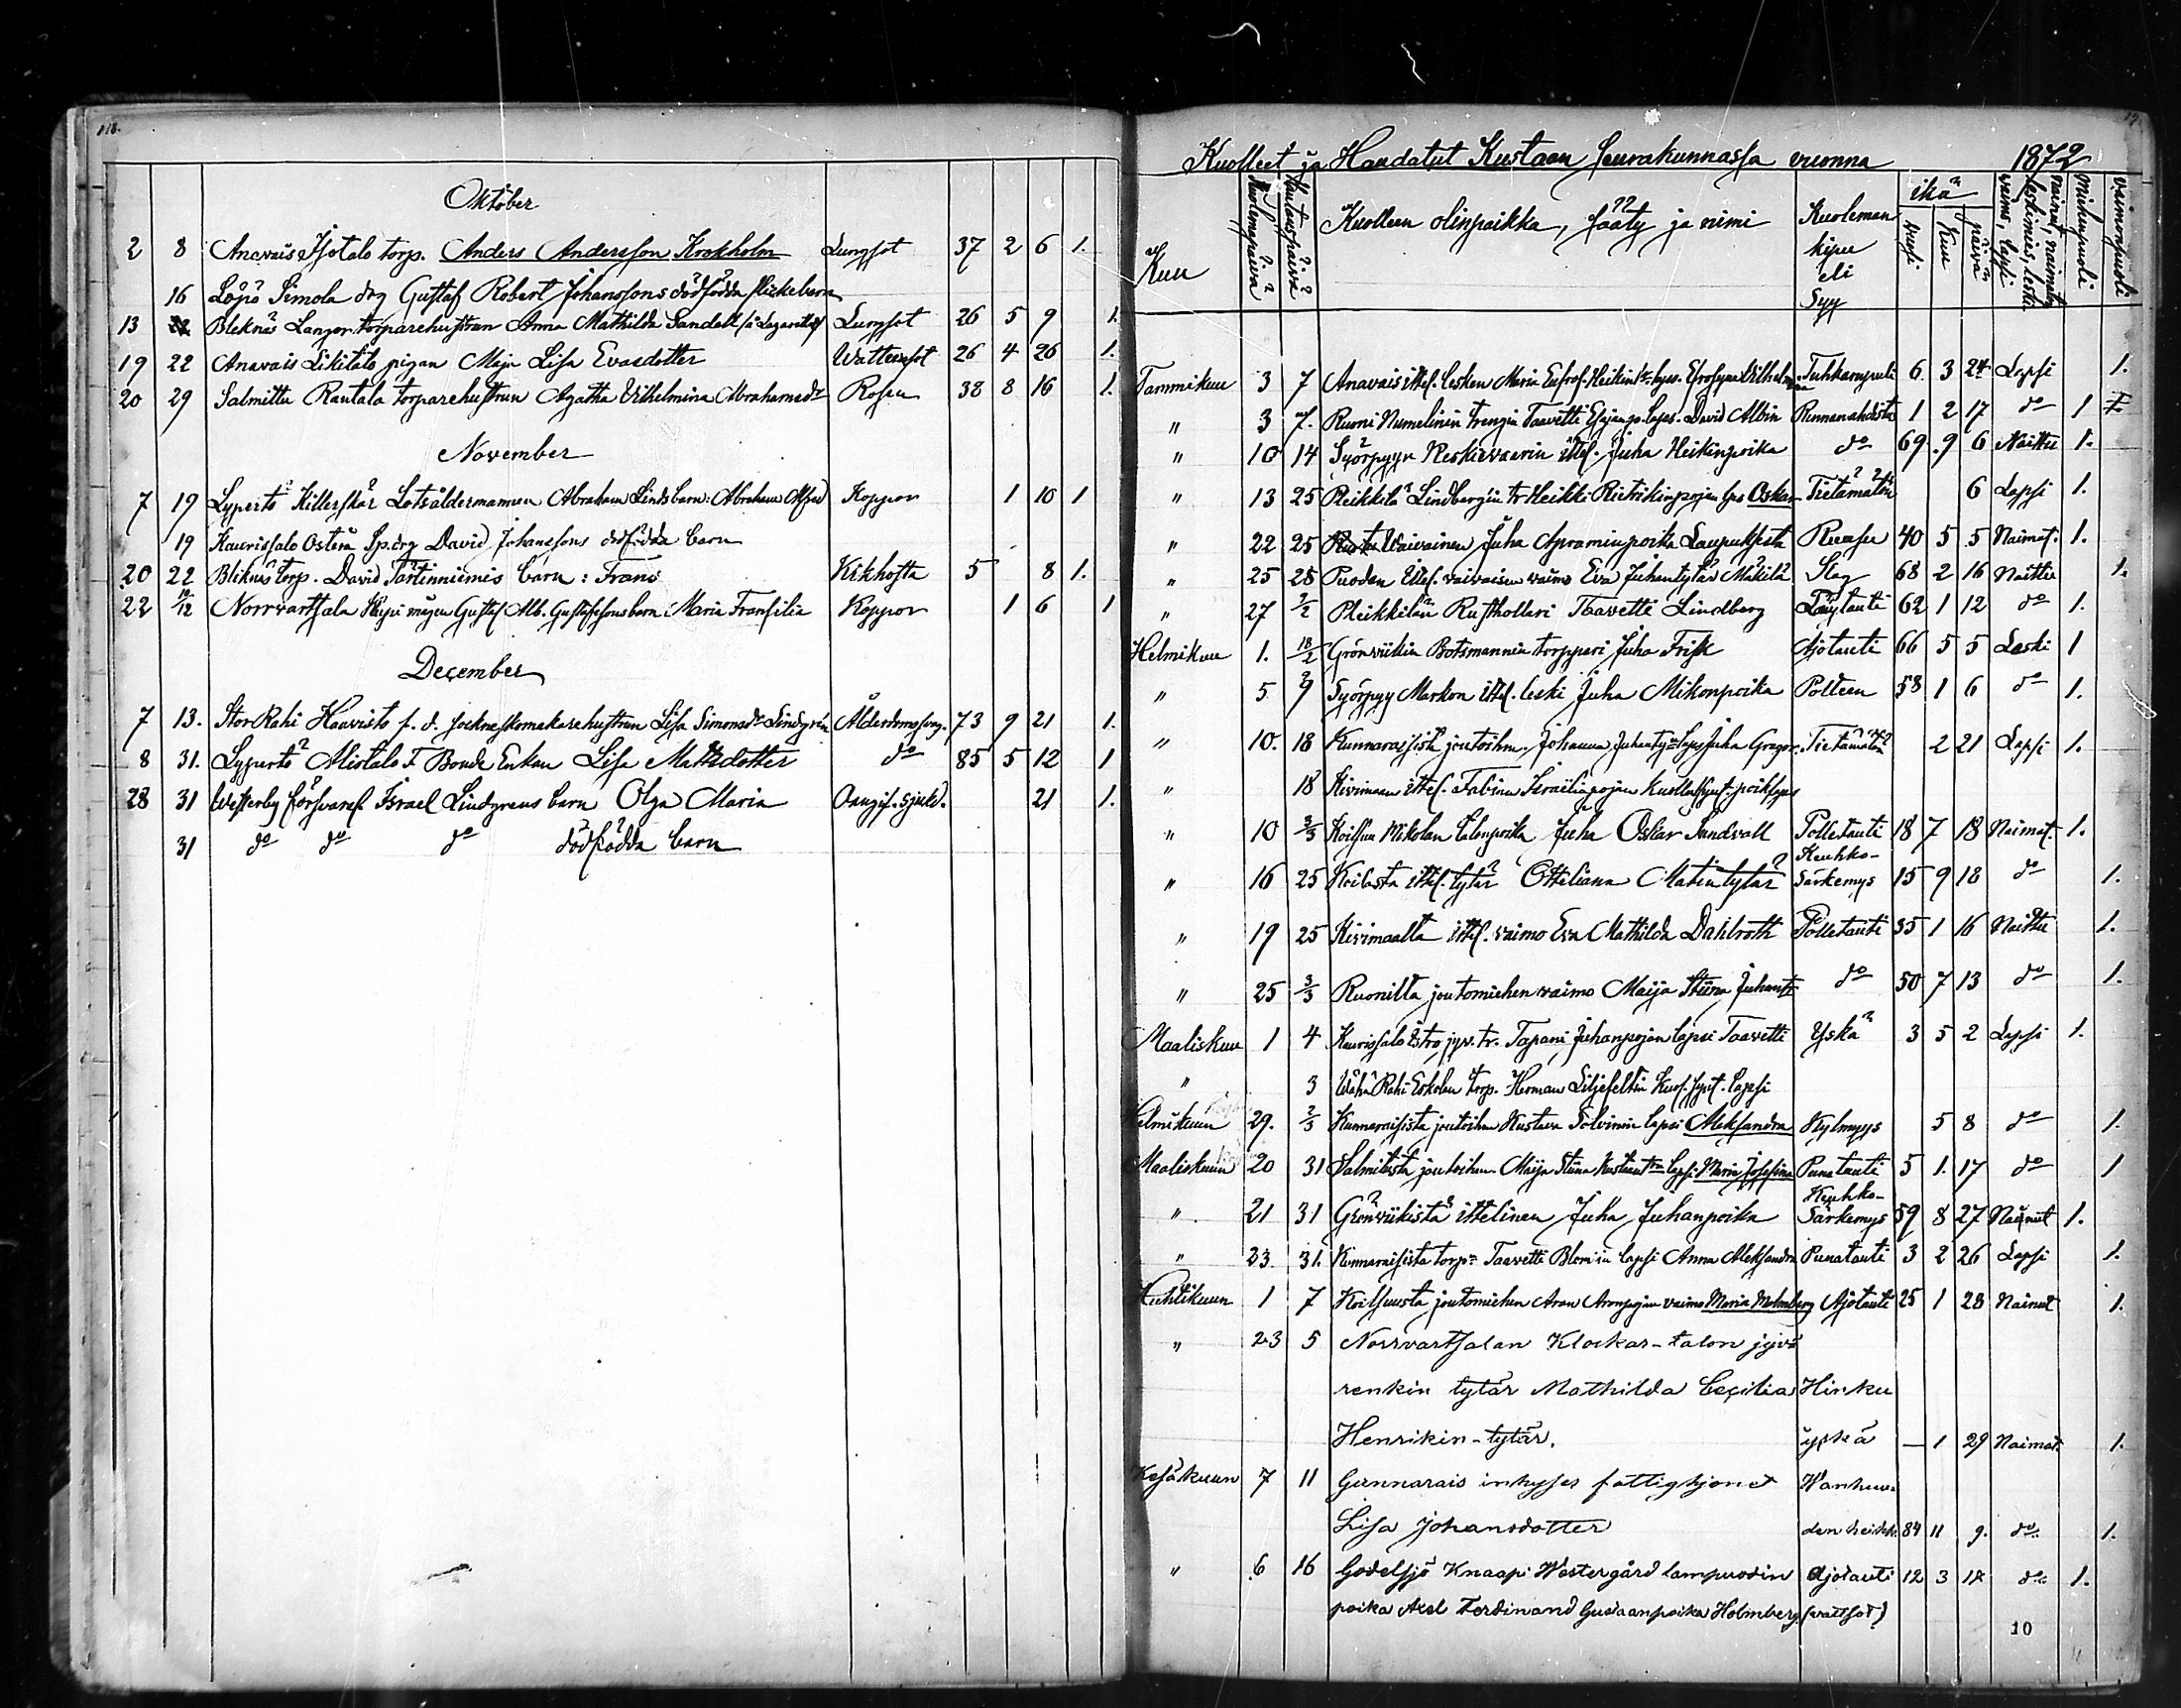 118.
Oktober
2 8 Anavais Isotalo torp. Anders Andersson Krokholm Lungsot 37 2 6 1.
16 Låpö Simola drg Gustaf Robert Johanssons dödfödda flickebarn
13 Bleknäs Langor torparehustrun Anna Mathilda Sandell Lungsot 26 5 9 1.
19 22 Anavais Likitalo pigan Maja Lisa Evasdotter Wattensot 26 4 26 1.
20 29 Salmittu Rantala torparehustrun Agatha Wilhelmina Abrahamsdr Rosen 38 8 16 1.
November
7 19 Lypertö Killerskär Lotsåldermannen Abraham Linds barn: Abraham Alfred Koppor 1 10 1
19 Kaurissalo Osterå Sp.drg David Johanssons dödfödda barn
20 22 Bleknäs torp. David Tärtinniemis barn: Frans Kikhosta 5 8 1.
22 10/12 Norrvartsala Gustaf Alb. Gustafssons barn Maria Fransilia Koppor 1 6 1
December
7 13. Stor Rahi Haavisto f. d. sockneskomakarehustrun Lisa Simonsdr Lindgrén Ålderdomssvag. 73 9 21 1.
8 31. Lypertö Alistalo F Bonde Enkan Lisa Mattsdotter do 85 5 12 1
28 31 Westerby försvarsk Israel Lindgrens barn Olga Maria Oangif. sjukd. 21 1.
31 do do do dödfödda barn
Kuolleet ja Haudatut Kustaan Seurakunnassa vuonna 1872
Kuu Kuolemapäivä Hautauspäivä Kuolleen olinpaikka, sääty ja nimi Kuoleman kipu eli Syy ikä vuosi kuu päivä nainut, naimaton, leskimies, leski vaimo, lapsi miehenpuoli vaimonpuoli
Tammikuu 3 7 Anavais ittel. lesken Maria Eufros. Heikint:n laps. Efrosyna Wilhelmiina Tuhkarupuli 6 3 24 Lapsi 1.
" 3 7. Ruoni Numelinin trengin Taavetti Esajanp. laps. David Albin Rinnanahdista 1 2 17 do 1
" 10 14 Syörpyyn Keskivaarin ittel. Juha Heikinpoika do 69 9 6 Naittu 1.
" 13 25 Pleikkilä Lindbergin tr Heikki Rietrikinpojan lps Oskar Tietämätön 6 Lapsi 1.
" 22 25 Waivainen Juha Apraminpoika Laupuksesta Ruusu 40 5 5 Naimat. 1.
" 25 28 Puoden ittel. vaivaisen vaimo Eva Juhantytär Mäkilä Slag 68 2 16 Naittu 1.
" 27 2/2 Pleikkilän Rusthollari Taavetti Lindberg 62 1 12 do 1.
Helmikuu 1. 18/2 Grönviikin Botsmannin torppari Juha Frisk Ajotauti 66 5 5 Leski 1
" 5 9 Syörpyy Markon ittel. leski Juha Mikonpoika Polteen 58 1 6 do 1.
" 10. 18 Kunnaraisista joutoihm. Johanna Juhanty:n laps Juha Gregor. Tietämätön 2 21 Lapsi 1.
" 18 Kivimaan ittel. Fabian Israelinpojan Kuollusynt. poikslaps
" 10 3/3 Koilsun Mikolan talonpoika Juha Oskar Sandvall Polletauti 18 7 18 Naimat. 1.
" 16 25 Koilasta ittel. tytär Otteliana Matintytär Keuhko-särkemys 15 9 18 do 1.
" 19 25 Kivimaalta ittel. vaimo Eva Mathilda Dahlroth Polletauti 35 1 16 Naittu 1.
" 25 3/3 Ruonilta joutomiehen vaimo Maija Stiina Juhantr do 50 7 13 do 1.
Maaliskuu 1 4 Kaurissalo Öströ jyv. tr. Tapani Juhanpojan lapsi Taavetti Yskä 3 5 2 Lapsi 1.
" 3 Wähä Rahi Eskolan torp. Herman Liljefeltin Kuol. synt. lapsi
Helmikuun 29. 2/3 Kunnaraisista joutoihm Kustava Solvinin lapsi Aleksandra Kylmyys 5 8 do 1.
Maaliskuun 20 31 Salmitusta joutoihm. Maija Stiina Kustaant:n lapsi Maria Josefina Punatauti 5 1. 17 do 1
" 21 31 Grönviikistä ittelinen Juha Juhanpoika Keuhko-Särkemys 59 8 27 Nainut 1.
" 23 31. Kunnaraisista torp:n Taavetti Blomin lapsi Anna Aleksandra Punatauti 3 2 26 Lapsi 1.
Huhtikuun 1 7 Koilsuusta joutomiehen Aron Aronpojan vaimo Maria Malmberg Ajotauti 25 1 28 Nainut 1.
" 23 5 Norrvartsalan Klockar-talon jyvä
renkin tytär Mathilda Cecilia Hinku
Henrikin-tytär. yskä — 1 29 Naimat. 1.
Kesäkuun 7 11 Gunnarais inhyses fattighjonet Wanhuu-
Lisa Johansdotter den heikk. 84 11 9. do. 1.
" 6 16 Godelsjö Knaapi Westergård lampuodin Ajotauti 12 3 18 do. 1.
poika Axel Ferdinand Gustaanpoika Holmberg. (vattsot)
10